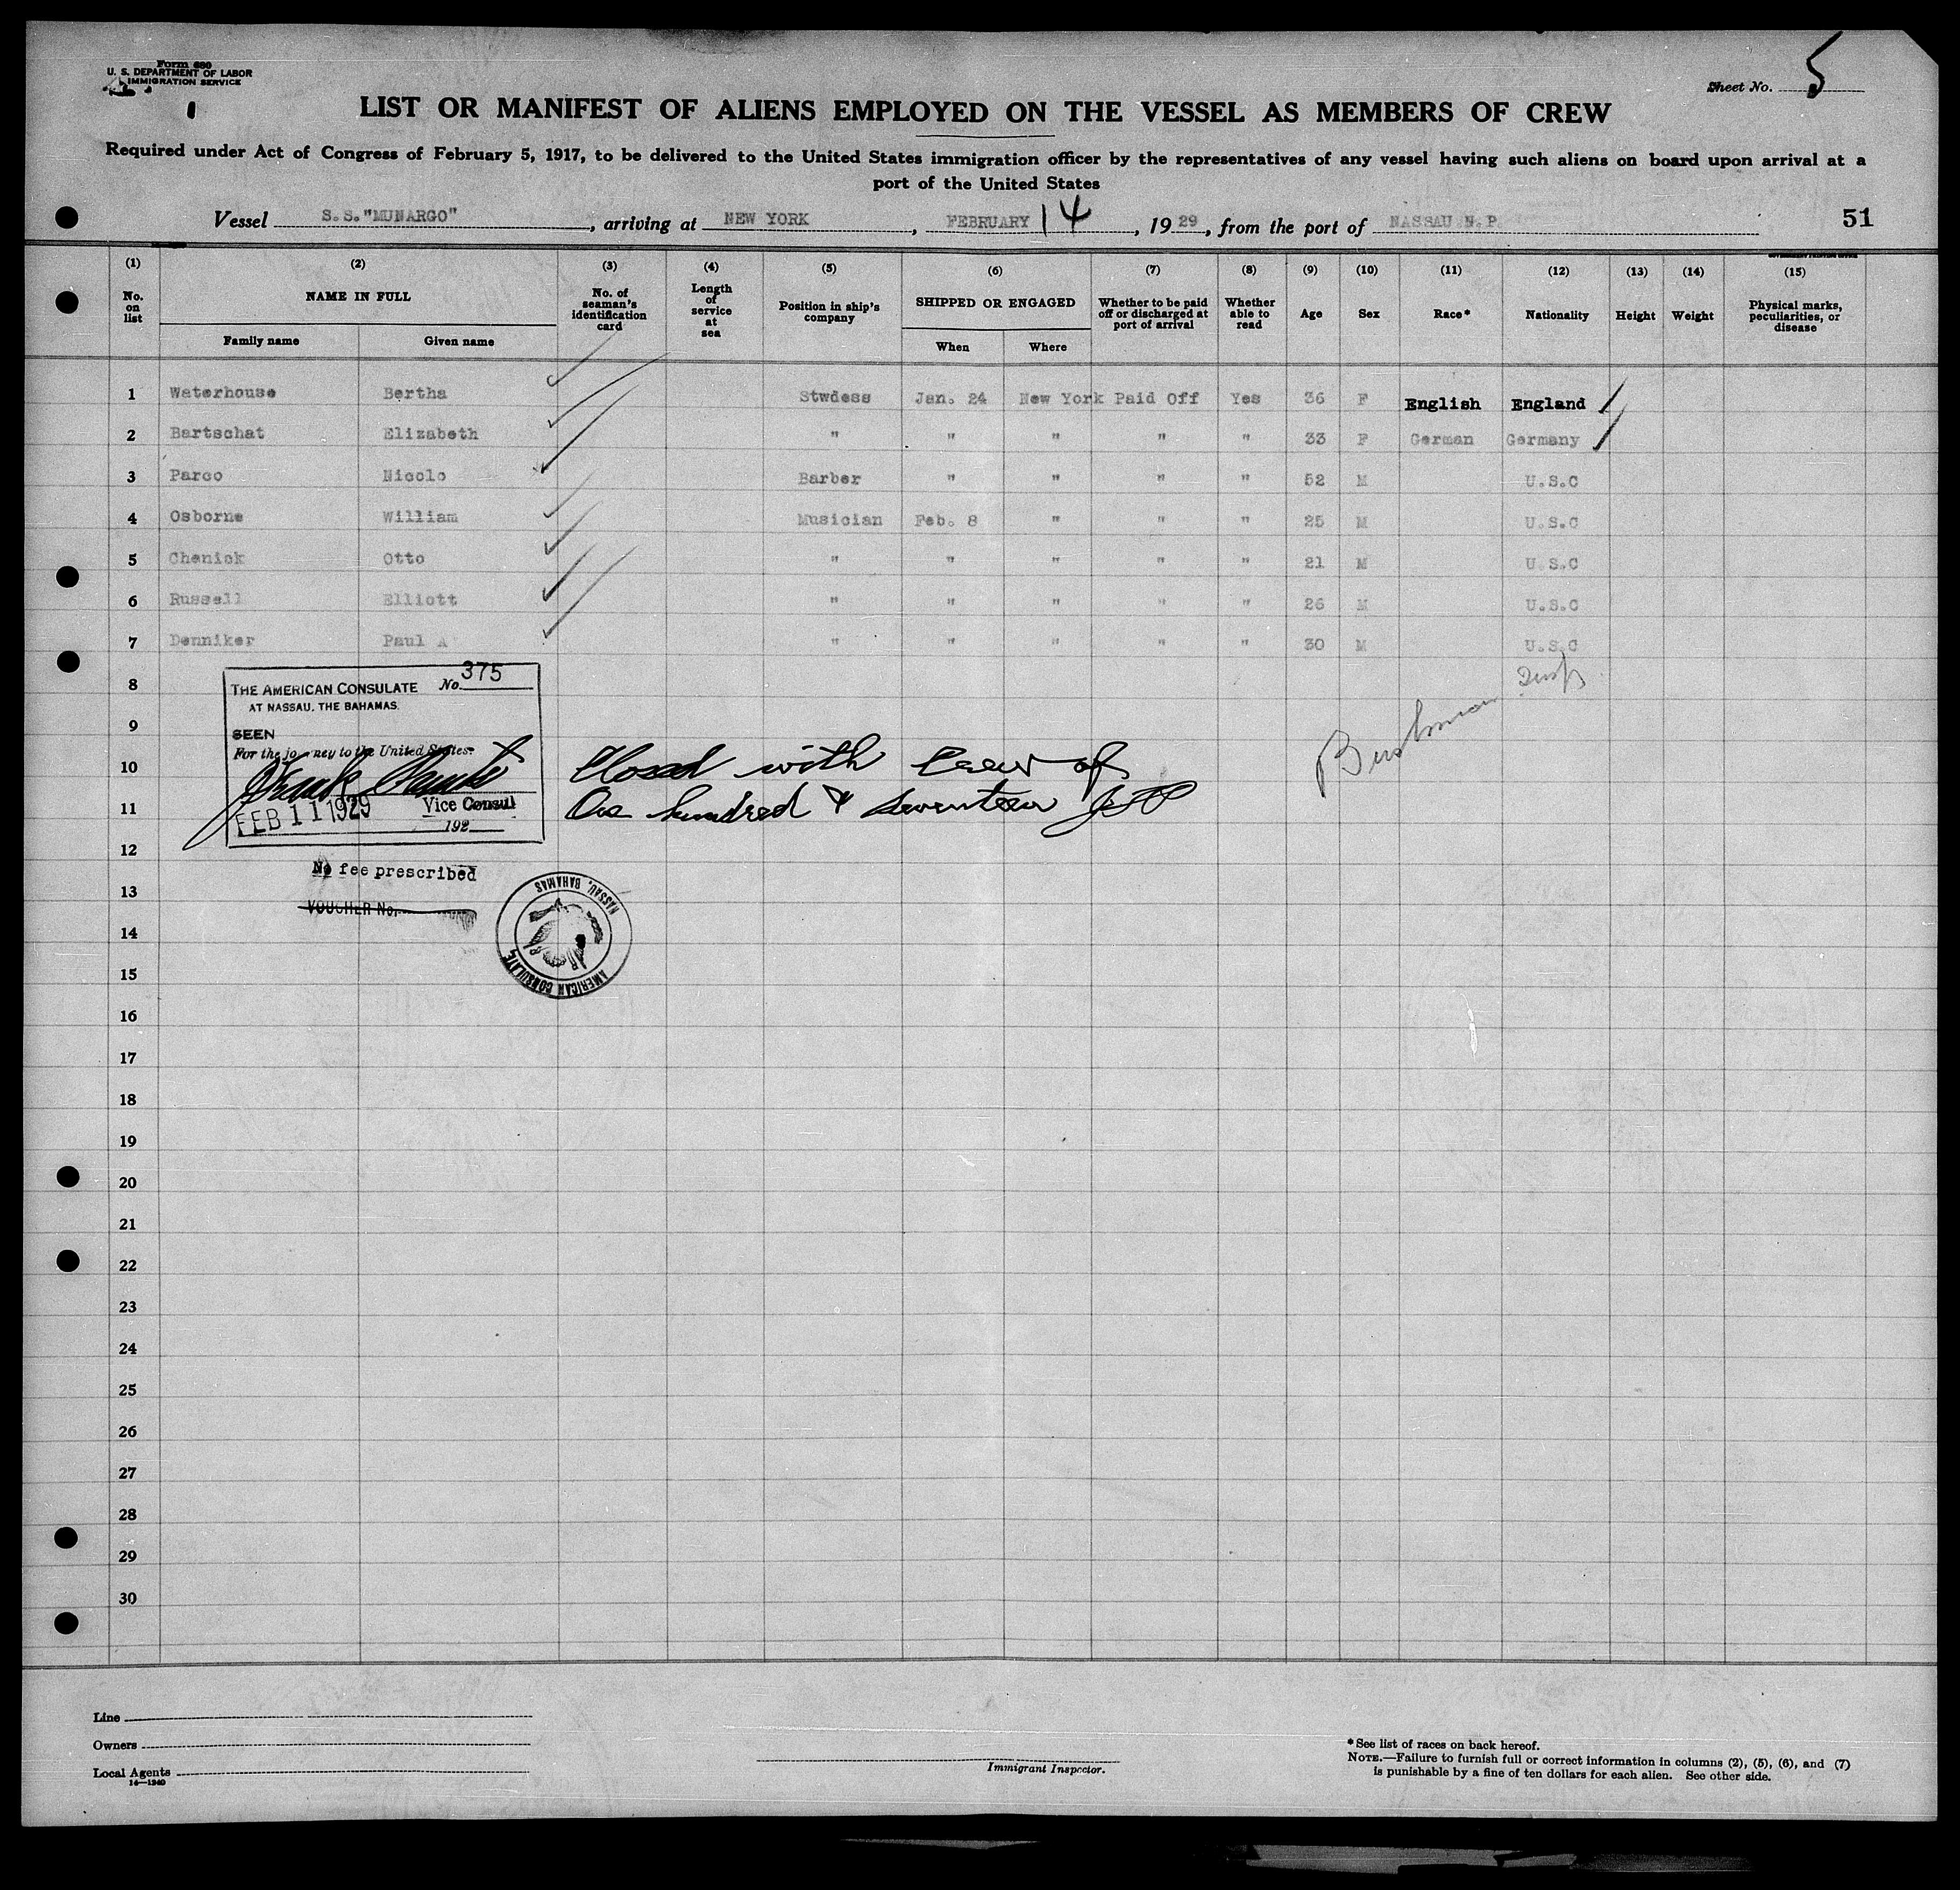 Form 680
U. S. DEPARTMENT OF LABOR
IMMIGRATION SERVICE
Sheet No. 5
LIST OR MANIFEST OF ALIENS EMPLOYED ON THE VESSEL AS MEMBERS OF CREW
Required under Act of Congress of February 5, 1917, to be delivered to the United States immigration officer by the representatives of any vessel having such aliens on board upon arrival at a
port of the United States
Vessel S.S."MUNARGO", arriving at NEW YORK, FEBRUARY 14, 1929, from the port of NASSAU N.P. 51
GOVERNMENT PRINTING OFFICE
(1) (2) (3) (4) (5) (6) (7) (8) (9) (10) (11) (12) (13) (14) (15)
No. on list NAME IN FULL No. of seaman's identification card Length of service at sea Position in ship's company SHIPPED OR ENGAGED Whether to be paid off or discharged at port of arrival Whether able to read Age Sex Race* Nationality Height Weight Physical marks, peculiarities, or disease
Family name Given name When Where
1 Waterhouse Bertha Stwdess Jan. 24 New York Paid Off Yes 36 F English England
2 Bartschat Elizabeth " " " " " 33 F German Germany
3 Parco Nicolo Barber " " " " 52 M U.S.C
4 Osborne William Musician Feb. 8 " " " 25 M U.S.C
5 Chenick Otto " " " " " 21 M U.S.C
6 Russell Elliott " " " " " 26 M U.S.C
7 Denniker Paul A " " " " " 30 M U.S.C
8
THE AMERICAN CONSULATE No. 375
AT NASSAU, THE BAHAMAS.
9
SEEN
For the journey to the United States.
10
Closed with Crew of
11
One hundred & seventeen
Bushman Insp
FEB 11 1929 Vice Consul
192
12
No fee prescribed
13
VOUCHER No.
AMERICAN CONSULATE
NASSAU, BAHAMAS
14
15
16
17
18
19
20
21
22
23
24
25
26
27
28
29
30
Line
Owners
Local Agents
14—1240
Immigrant Inspector.
*See list of races on back hereof.
NOTE.—Failure to furnish full or correct information in columns (2), (5), (6), and (7)
is punishable by a fine of ten dollars for each alien. See other side.